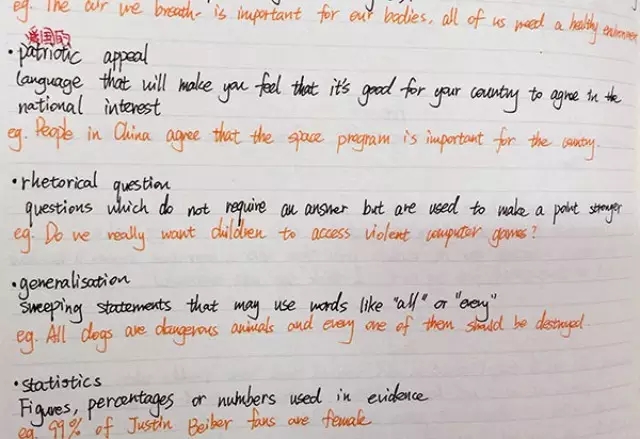 eg. The air we breath- is important for our bodies, all of us need a healthy environment
爱国的
• patriotic appeal
language that will make you feel that it's good for your country to agree in the
national interest
eg. People in China agree that the space program is important for the country.
• rhetorical question
questions which do not require an answer but are used to make a point stronger
eg. Do we really want children to access violent computer games?
• generalisation
sweeping statements that may use words like "all" or "every"
eg. All dogs are dangerous animals and every one of them should be destroyed.
• statistics
Figures, percentages or numbers used in evidence
eg. 99% of Justin Beiber fans are female